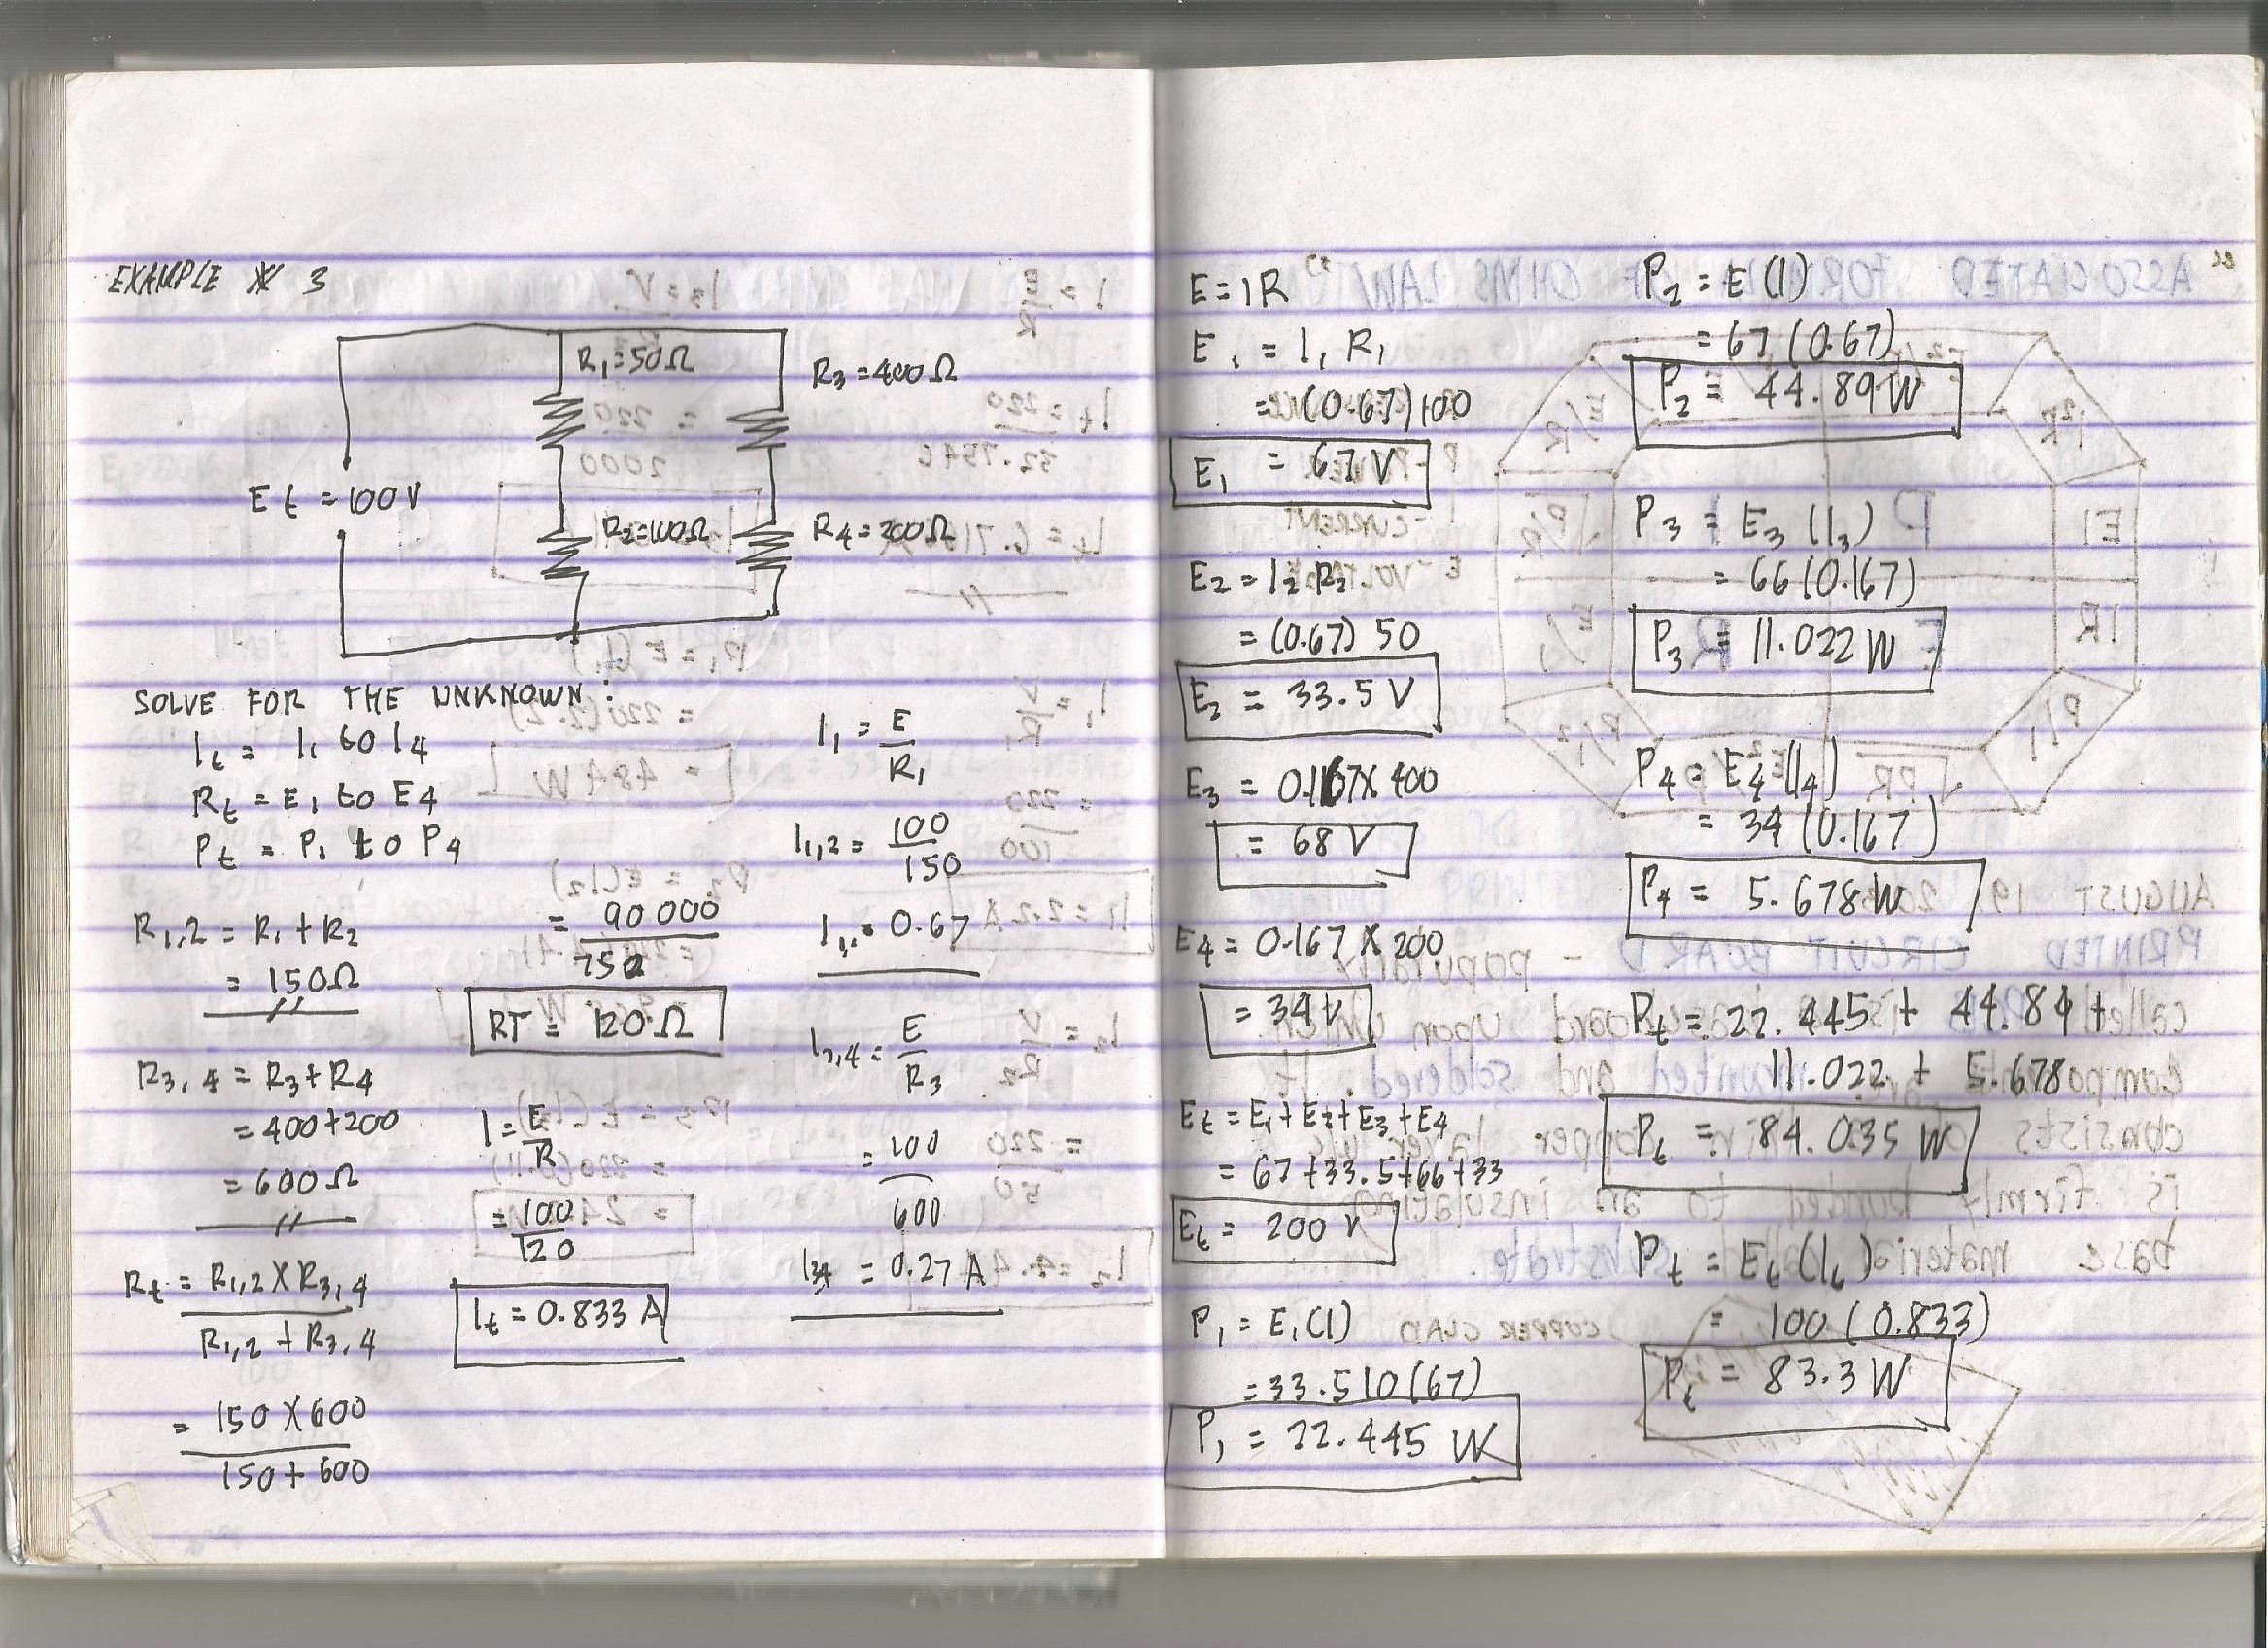 EXAMPLE # 3
R1=50Ω
R3=400Ω
Et=100V
R2=100Ω
R4=200Ω
SOLVE FOR THE UNKNOWN:
It = I1 to I4
Rt = E1 to E4
Pt = P1 to P4
R1,2 = R1+R2
= 150Ω
R3,4 = R3+R4
=400+200
=600Ω
Rt = R1,2 X R3,4
R1,2 + R3,4
= 150 X 600
150+600
= 90 000
750
RT = 120Ω
I = E
R
= 100
120
It = 0.833 A
I1 = E
R1
I1,2 = 100
150
= 0.67
I3,4 = E
R3
= 100
600
I34 = 0.27 A
E=IR
E1 = I1 R1
= (0.67)100
E1 = 67 V
E2 = I2 R2
= (0.67) 50
E2 = 33.5 V
E3 = 0.167 X 400
= 68 V
E4 = 0.167 X 200
= 34V
Et = E1+E2+E3+E4
= 67+33.5+66+33
Et = 200 V
P1 = E1(I)
=33.510(67)
P1 = 22.445 W
P2 = E(I)
= 67(0.67)
P2 = 44.89 W
P3 = E3(I3)
= 66(0.167)
P3 = 11.022 W
P4 = E4(I4)
= 34(0.167)
P4 = 5.678W
Pt = 22.445 + 44.84 +
11.022 + 5.678
Pt = 84.035 W
Pt = Et(It)
= 100(0.833)
Pt = 83.3 W